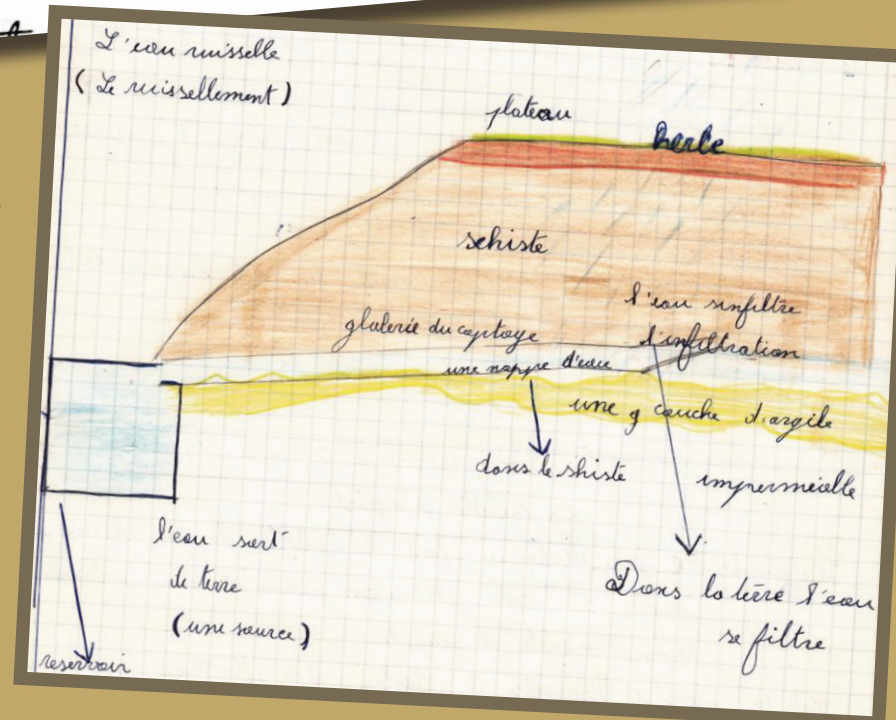 L'eau ruisselle
(Le ruissellement)
plateau
Herle
schiste
l'eau sinfiltre
l'infiltration
glalerie du captage
une nappe d'eau
une g couche d'argile
dans le shiste
imperméalle
l'eau sort
de terre
(une source)
Dans la tèrre l'eau
se filtre
reservoir